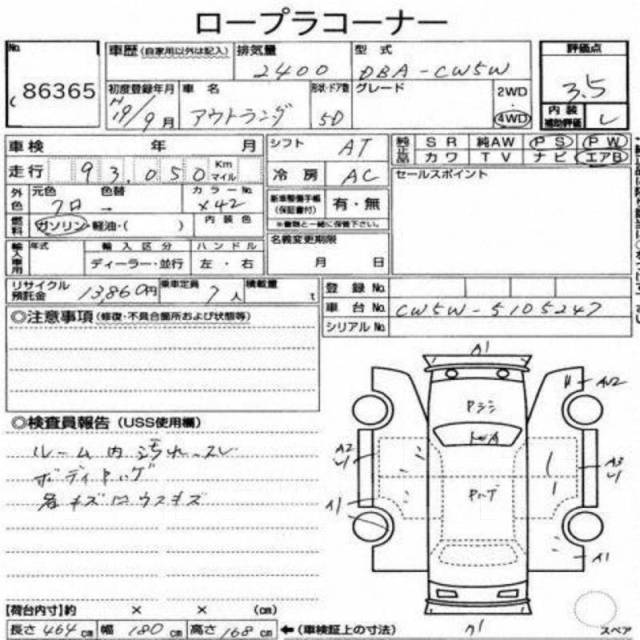 ロープラコーナー
No.
86365
車歴 (自家用以外は記入)
排気量 2400
型式 DBA-CW5W
評価点 3.5
初度登録年月 H19/9月
車名 アウトランダ
形状・ドア数 5D
グレード
2WD
4WD
内装
補助評価
車検 年 月
シフト AT
純正品
SR 純AW PS PW
カワ TV ナビ エアB
走行 93,050 Km マイル
冷房 AC
セールスポイント
外色
元色 クロ
色替 →
カラーNo. X42
内装色
新車整備手帳
(保証書付)
有・無
※書類と一緒に保管下さい。
燃料
ガソリン・軽油・( )
名義変更期限
月 日
輸入車用
年式
輸入区分
ディーラー・並行
ハンドル
左・右
リサイクル
預託金 13,860円
乗車定員 7人
積載量 t
登録No.
車台No. CW5W-5105247
シリアルNo.
◎注意事項 (修復・不具合箇所および状態等)
◎検査員報告 (USS使用欄)
ルーム内汚れ・スレ
A1
Pラジ
AW2
A2
A3
A1
A1
スペア
【荷台内寸】約 × × (cm)
長さ 464 cm 幅 180 cm 高さ 168 cm ←(車検証上の寸法)